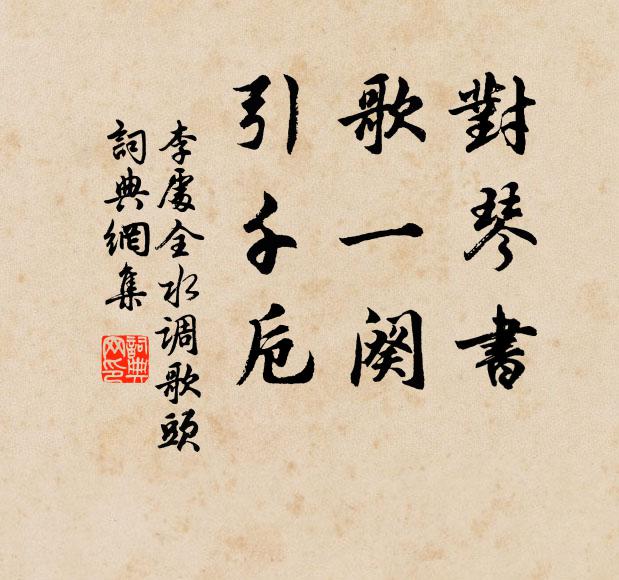 對琴書
歌一闋
引千卮
李處全水调歌頭
詞典網集
詞典網印